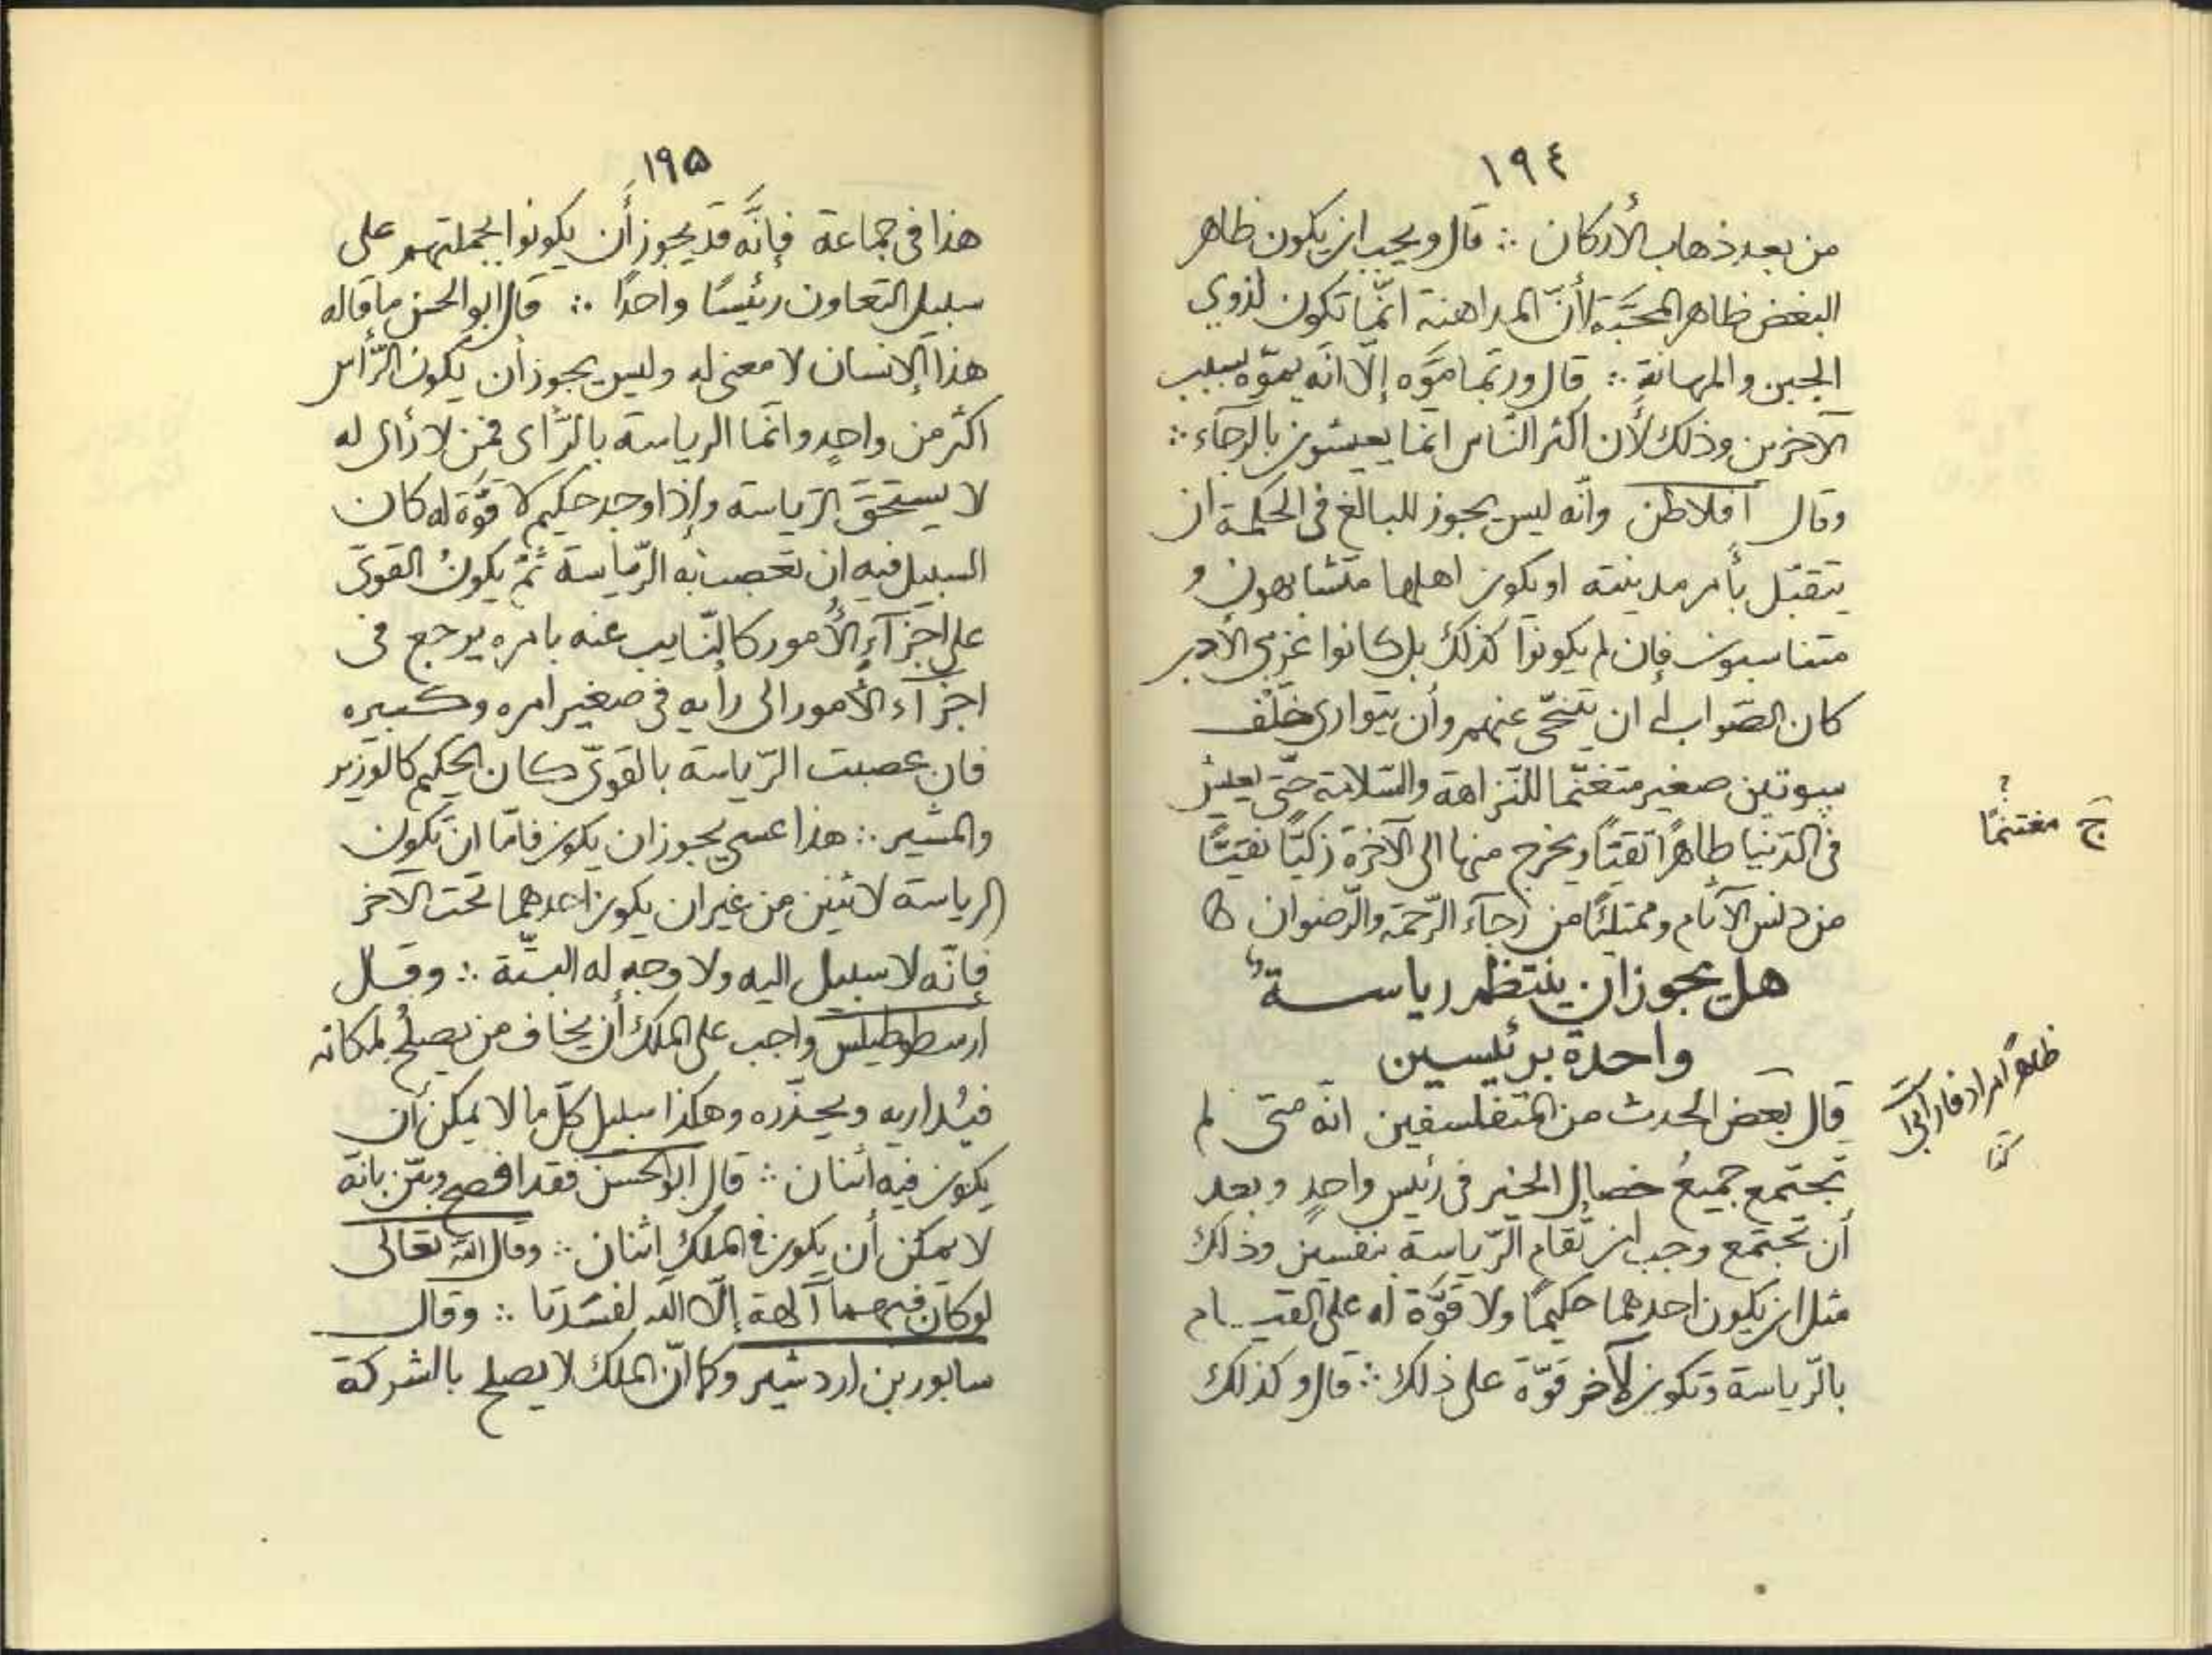 ١٩٤
من بعد ذهاب الأركان ∴ قال ويجب ان يكون ظاهر
البغض ظاهر المحبّة لأنّ المداهنة انّما تكون لذوي
الجبن والمهانة ∴ قال وربّما موّه إلّا انّه يموّه بسبب
الآخرين وذلك لأن اكثر النّاس انما يعيشون بالرجاء ∴
وقال افلاطن وانّه ليس يجوز للبالغ في الحكمة ان
يتقبّل بأمر مدينته او يكون اهلها متشابهون و
متناسبون فإن لم يكونوا كذلك بل كانوا غربى الأدب
كان الصّواب له ان يتنحّى عنهم وأن يتوارى خلف
بيوتين صغير متغنّما للنّزاهة والسّلامة حتّى يعيش
في الدّنيا طاهرًا تقيّا ويخرج منها الى الآخرة زكيّا نقيّا
من دنس الآثام وممتلئًا من رجآء الرّحمة والرّضوان
هل يجوز ان ينتظم رياسة
واحدة برئيسين
قال بعض الحدث من المتفلسفين انّه متى لم
تجتمع جميعُ خصال الخير في رئيس واحدٍ وبعد
أن تجتمع وجب ان تقام الرّياسة بنفسين وذلك
مثل ان يكون احدهما حكيمًا ولا قوّة له على القيام
بالرّياسة وتكون لآخر قوّة على ذلك ∴ قال وكذلك
ج مغتنمًا ؟
ظاهرًا مراد فارابى است
١٩۵
هذا في جماعة فإنّه قد يجوز أن يكونوا بجملتهم على
سبيل التعاون رئيسًا واحدًا ∴ قال ابو الحسن ما قاله
هذا الإنسان لا معنى له وليس يجوز أن يكون الرّأس
اكثر من واحدٍ وانّما الرياسة بالرّأى فمن لا رأى له
لا يستحقّ الرّياسة وإذا وجد حكيم لا قوّة له كان
السبيل فيه ان تعصب به الرّياسة ثمّ يكونُ القوىّ
على اجزآءِ الأُمور كالنّايب عنه بامره يرجع في
اجزآء الأمور الى رأيه في صغير امره وكبيره
فان عصبت الرّياسة بالقوىّ كان الحكيم كالوزير
والمشير ∴ هذا عسى يجوز ان يكون فامّا ان تكون
الرياسة لاثنين من غير ان يكون احدهما تحت الآخر
فإنّه لا سبيل اليه ولا وجه له البتّة ∴ وقال
أرسطوطيلس واجب على الملك أن يخاف من يصلحُ لمكانه
فيُداريه ويحذّره وهكذا سبيل كلّ ما لا يمكن أن
يكون فيه اثنان ∴ قال ابو الحسن فقد افصح وبيّن بانّه
لا يمكن أن يكون في الملك اثنان ∴ وقال الله تعالى
لو كان فيهما آلهة إلّا الله لفسدتا ∴ وقال
سابور بن اردشير وكما انّ الملك لا يصلح بالشركة